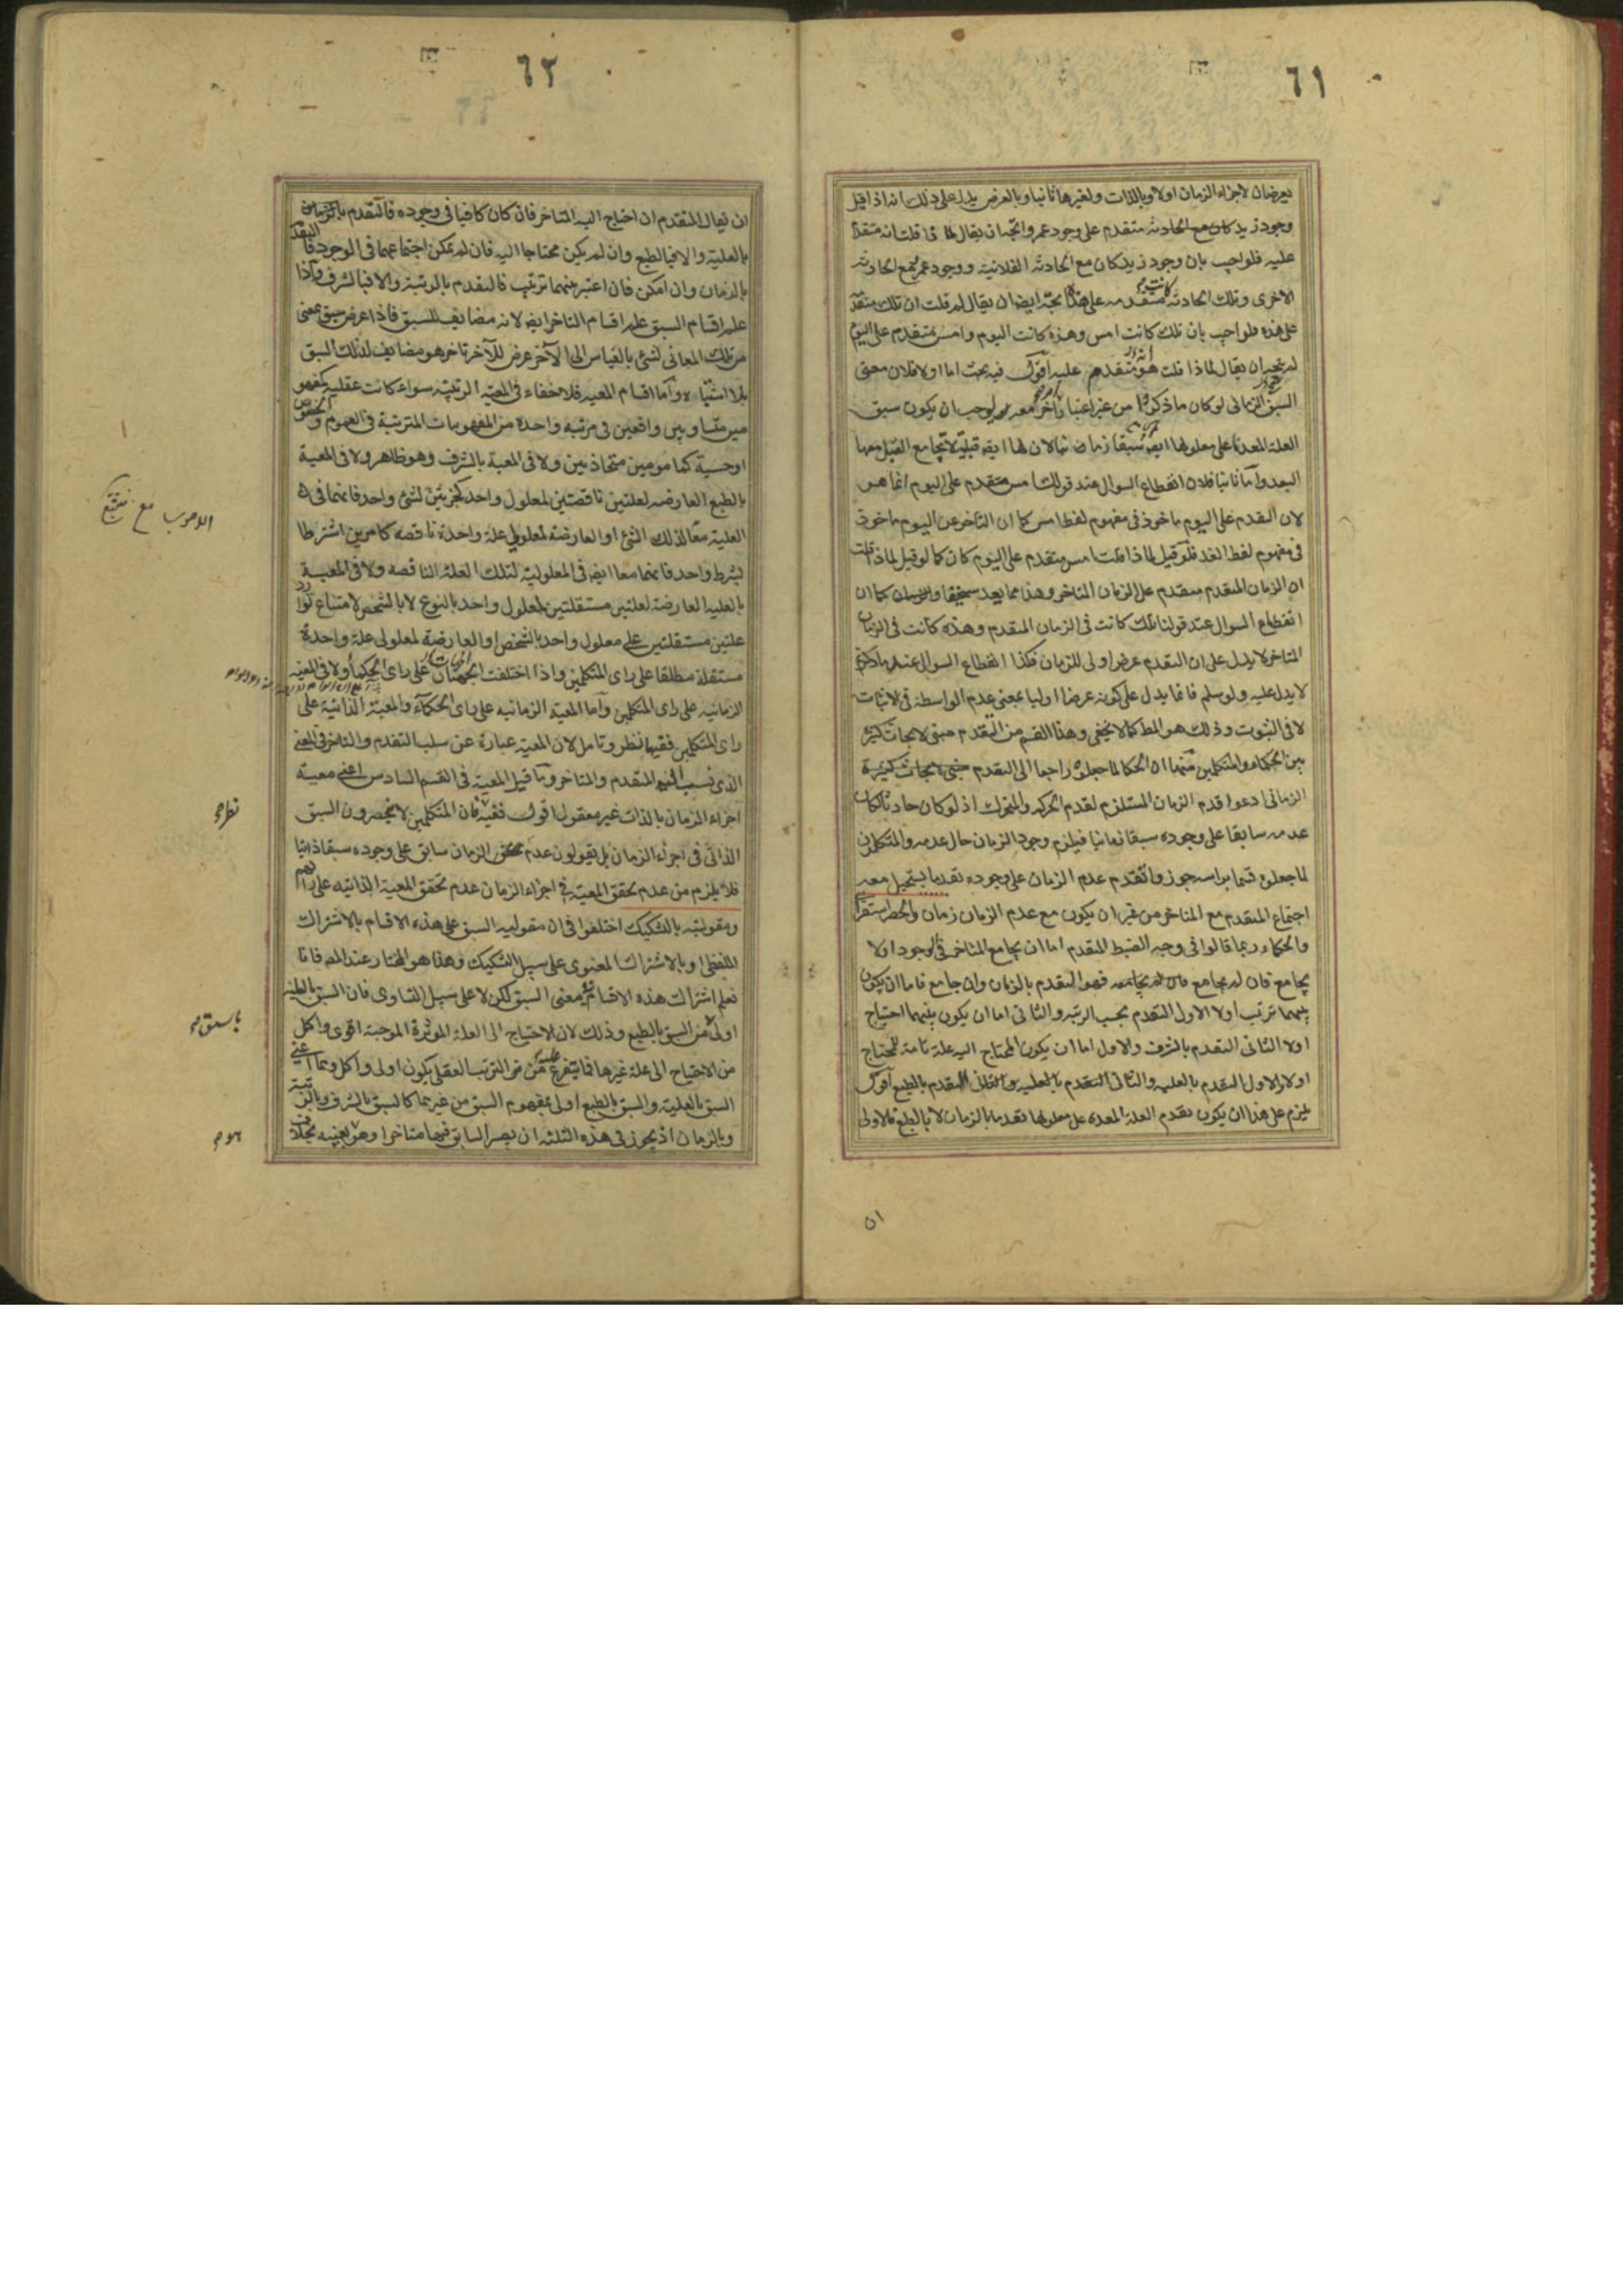 ٦١
يعرضان لاجزاء الزمان اولا وبالذات ولغيرها ثانيا وبالعرض يدل على ذلك انه اذا قيل
وجود زيد كان مع الحادثه متقدم على وجود عمرو اتجه ان يقال لما ذا قلت انه متقدم
عليه فلو اجيب بان وجود زيد كان مع الحادثه الفلانية ووجود عمرو مع الحادثه
الاخرى وتلك الحادثه كانت متقدمه على هذه يتجه ايضا ان يقال لم قلت ان تلك متقدمة
على هذه فلو اجيب بان تلك كانت امس وهذه كانت اليوم وامس متقدم على اليوم
لم يتجه ان يقال لماذا قلت هو متقدم عليه اقول فيه بحث اما اولا فلان معنى
السبق الزمانى لو كان ما ذكروا من غير اعتبار امر آخر معه لوجب ان يكون سبق
العلة المعدة على معلولها ايضا سبقا زمانيا لان لها ايضا قبلية لا يجامع القبل معها
البعد واما ثانيا فلان انقطاع السوال عند قولك امس متقدم على اليوم انما هو
لان التقدم على اليوم ماخوذ فى مفهوم لفظ امس كما ان التاخر عن اليوم ماخوذ
فى مفهوم لفظ الغد فلو قيل لماذا قلت امس متقدم على اليوم كان كما لو قيل لماذا قلت
ان الزمان المتقدم متقدم على الزمان المتاخر وهذا مما يعد سخيفا كما ان
انقطاع السوال عند قولنا تلك كانت فى الزمان المتقدم وهذه كانت فى الزمان
المتاخر لا يدل على ان التقدم عرض اولى للزمان فكذا انقطاع السوال عند ما ذكرتم
لا يدل عليه ولو سلم فانما يدل على كونه عرضا اوليا بمعنى عدم الواسطة فى الاثبات
لا فى الثبوت وذلك هو المط كما لا يخفى وهذا القسم من التقدم مبنى لابحاث كثيرة
بين الحكماء والمتكلمين منها ان الحكما لما جعلوه راجعا الى التقدم
الزمانى ادعوا قدم الزمان المستلزم لقدم الحركه والمتحرك اذ لو كان حادثا لكان
عدمه سابقا على وجوده سبقا زمانيا فيلزم وجود الزمان حال عدمه والمتكلمين
لما جعلوه قسما براسه جوزوا تقدم عدم الزمان على وجوده تقدما يستحيل معه
اجتماع المتقدم مع المتاخر من غير ان يكون مع عدم الزمان زمان والحصر استقرائى
والحكماء ربما قالوا فى وجه الضبط المتقدم اما ان يجامع المتاخر فى الوجود اولا
يجامع فان لم يجامع فهو التقدم بالزمان وان جامع فاما ان يكون
بينهما ترتب اولا الاول التقدم بحسب الرتبه والثانى اما ان يكون بينهما احتياج
اولا الثانى التقدم بالشرف والاول اما ان يكون المحتاج اليه علة تامة للمحتاج
اولا الاول التقدم بالعليه والثانى التقدم بالطبع اقول
يلزم على هذا ان يكون تقدم العلة المعده على معلولها تقدما بالزمان لا بالطبع فالاولى
ان
٦٢
ان يقال المتقدم ان احتاج اليه المتاخر فان كان كافيا فى وجوده فالتقدم
بالعلية والا فبالطبع وان لم يكن محتاجا اليه فان لم يمكن اجتماعهما فى الوجود فالتقدم
بالزمان وان امكن فان اعتبر بينهما ترتب فالتقدم بالرتبة والا فبالشرف واذا
علم اقسام السبق علم اقسام التاخر ايضا لانه مضايف للسبق فاذا عرض سبق بمعنى
من تلك المعانى لشئ بالقياس الى الآخر عرض للآخر تاخر هو مضايف لذلك السبق
بلا اشتباه واما اقسام المعيه فلا خفاء فى المعيه الرتبيه سواء كانت عقليه كمفهو
مين متساويين واقعين فى مرتبة واحدة من المفهومات المترتبة فى العموم والخصوص
او حسية كمامومين متحاذيين ولا فى المعية بالشرف وهو ظاهر ولا فى المعية
بالطبع العارضه لعلتين ناقصتين لمعلول واحد كجزئين لشئ واحد فانهما فى
العلية معا لذلك الشئ او العارضة لمعلولى علة واحدة ناقصه كامرين اشترطا
بشرط واحد فانهما معا ايضا فى المعلولية لتلك العلة الناقصه ولا فى المعية
بالعلية العارضة لعلتين مستقلتين لمعلول واحد بالنوع لا بالشخص لامتناع توارد
علتين مستقلتين على معلول واحد بالشخص او العارضة لمعلولى علة واحدة
مستقلة مطلقا على راى المتكلمين واذا اختلفت الجهتان على راى الحكماء ولا فى المعية
الزمانيه على راى المتكلمين واما المعية الزمانيه على راى الحكماء والمعية الذاتية على
راى المتكلمين ففيها نظر وتامل لان المعية عبارة عن سلب التقدم والتاخر فى المعنى
الذى نسب اليه المتقدم والمتاخر وما قيل المعية فى القسم السادس اعنى معية
اجزاء الزمان بالذات غير معقول اقول ففيه فان المتكلمين لا يحصرون السبق
الذاتى فى اجزاء الزمان بل يقولون عدم الزمان سابق على وجوده سبقا ذاتيا
فلا يلزم من عدم تحقق المعية فى اجزاء الزمان عدم تحقق المعية الذاتيه على رايهم
ومقوليته بالتشكيك اختلفوا فى ان مقوليه السبق على هذه الاقسام بالاشتراك
اللفظى او بالاشتراك المعنوى على سبيل التشكيك وهذا هو المختار عند المصـ فانا
نعلم اشتراك هذه الاقسام فى معنى السبق لكن لا على سبيل التساوى فان السبق بالعلية
اولى من السبق بالطبع وذلك لان الاحتياج الى العلة المؤثرة الموجبة اقوى واكمل
من الاحتياج الى علة غيرها فما يتفرع عليه من الترتب العقلى يكون اولى واكمل وهما اعنى
السبق بالعلية والسبق بالطبع اولى بمفهوم السبق من غيرهما كالسبق بالشرف وبالرتبة
وبالزمان اذ يجوز فى هذه الثلثه ان يصير السابق فيها متاخرا وهو بعينه بخلاف